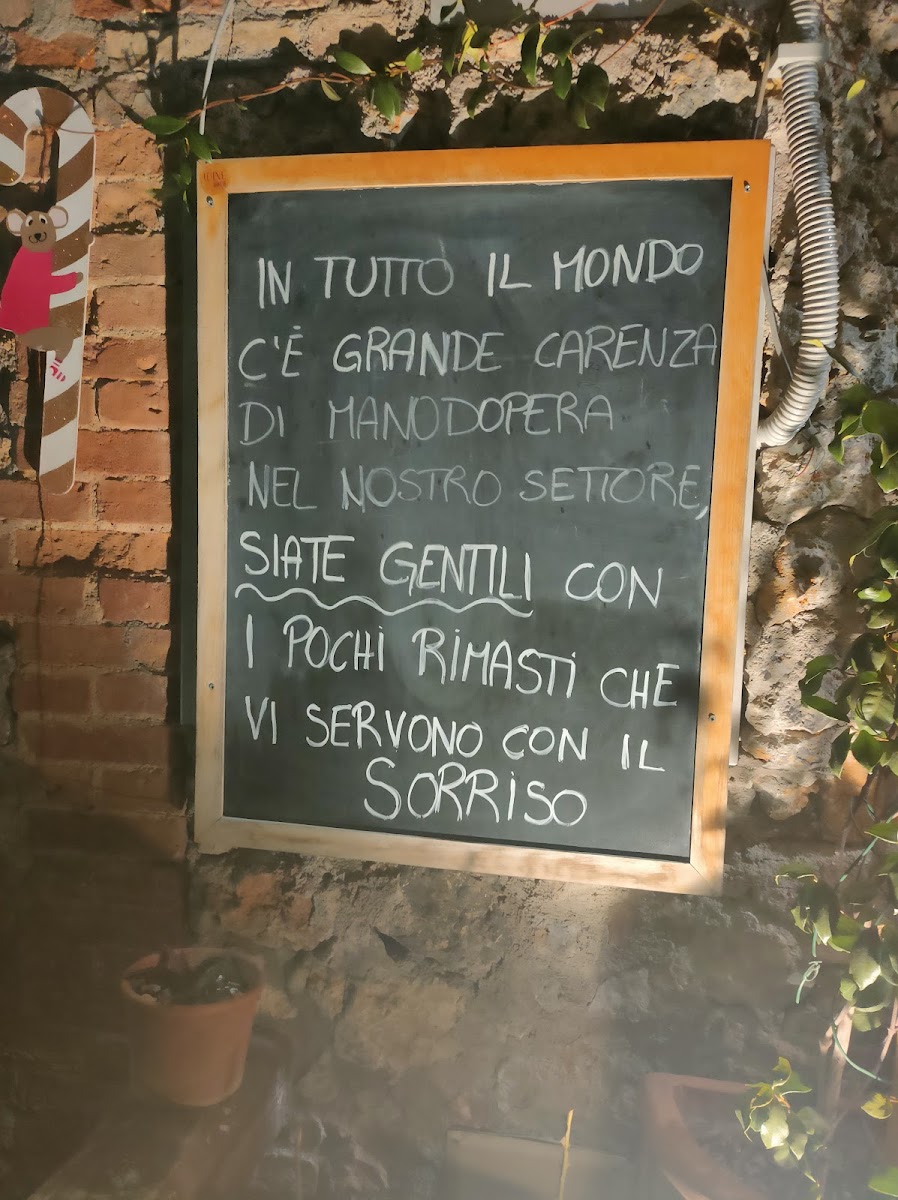 IN TUTTO IL MONDO
C'È GRANDE CARENZA
DI MANODOPERA
NEL NOSTRO SETTORE,
SIATE GENTILI CON
I POCHI RIMASTI CHE
VI SERVONO CON IL
SORRISO